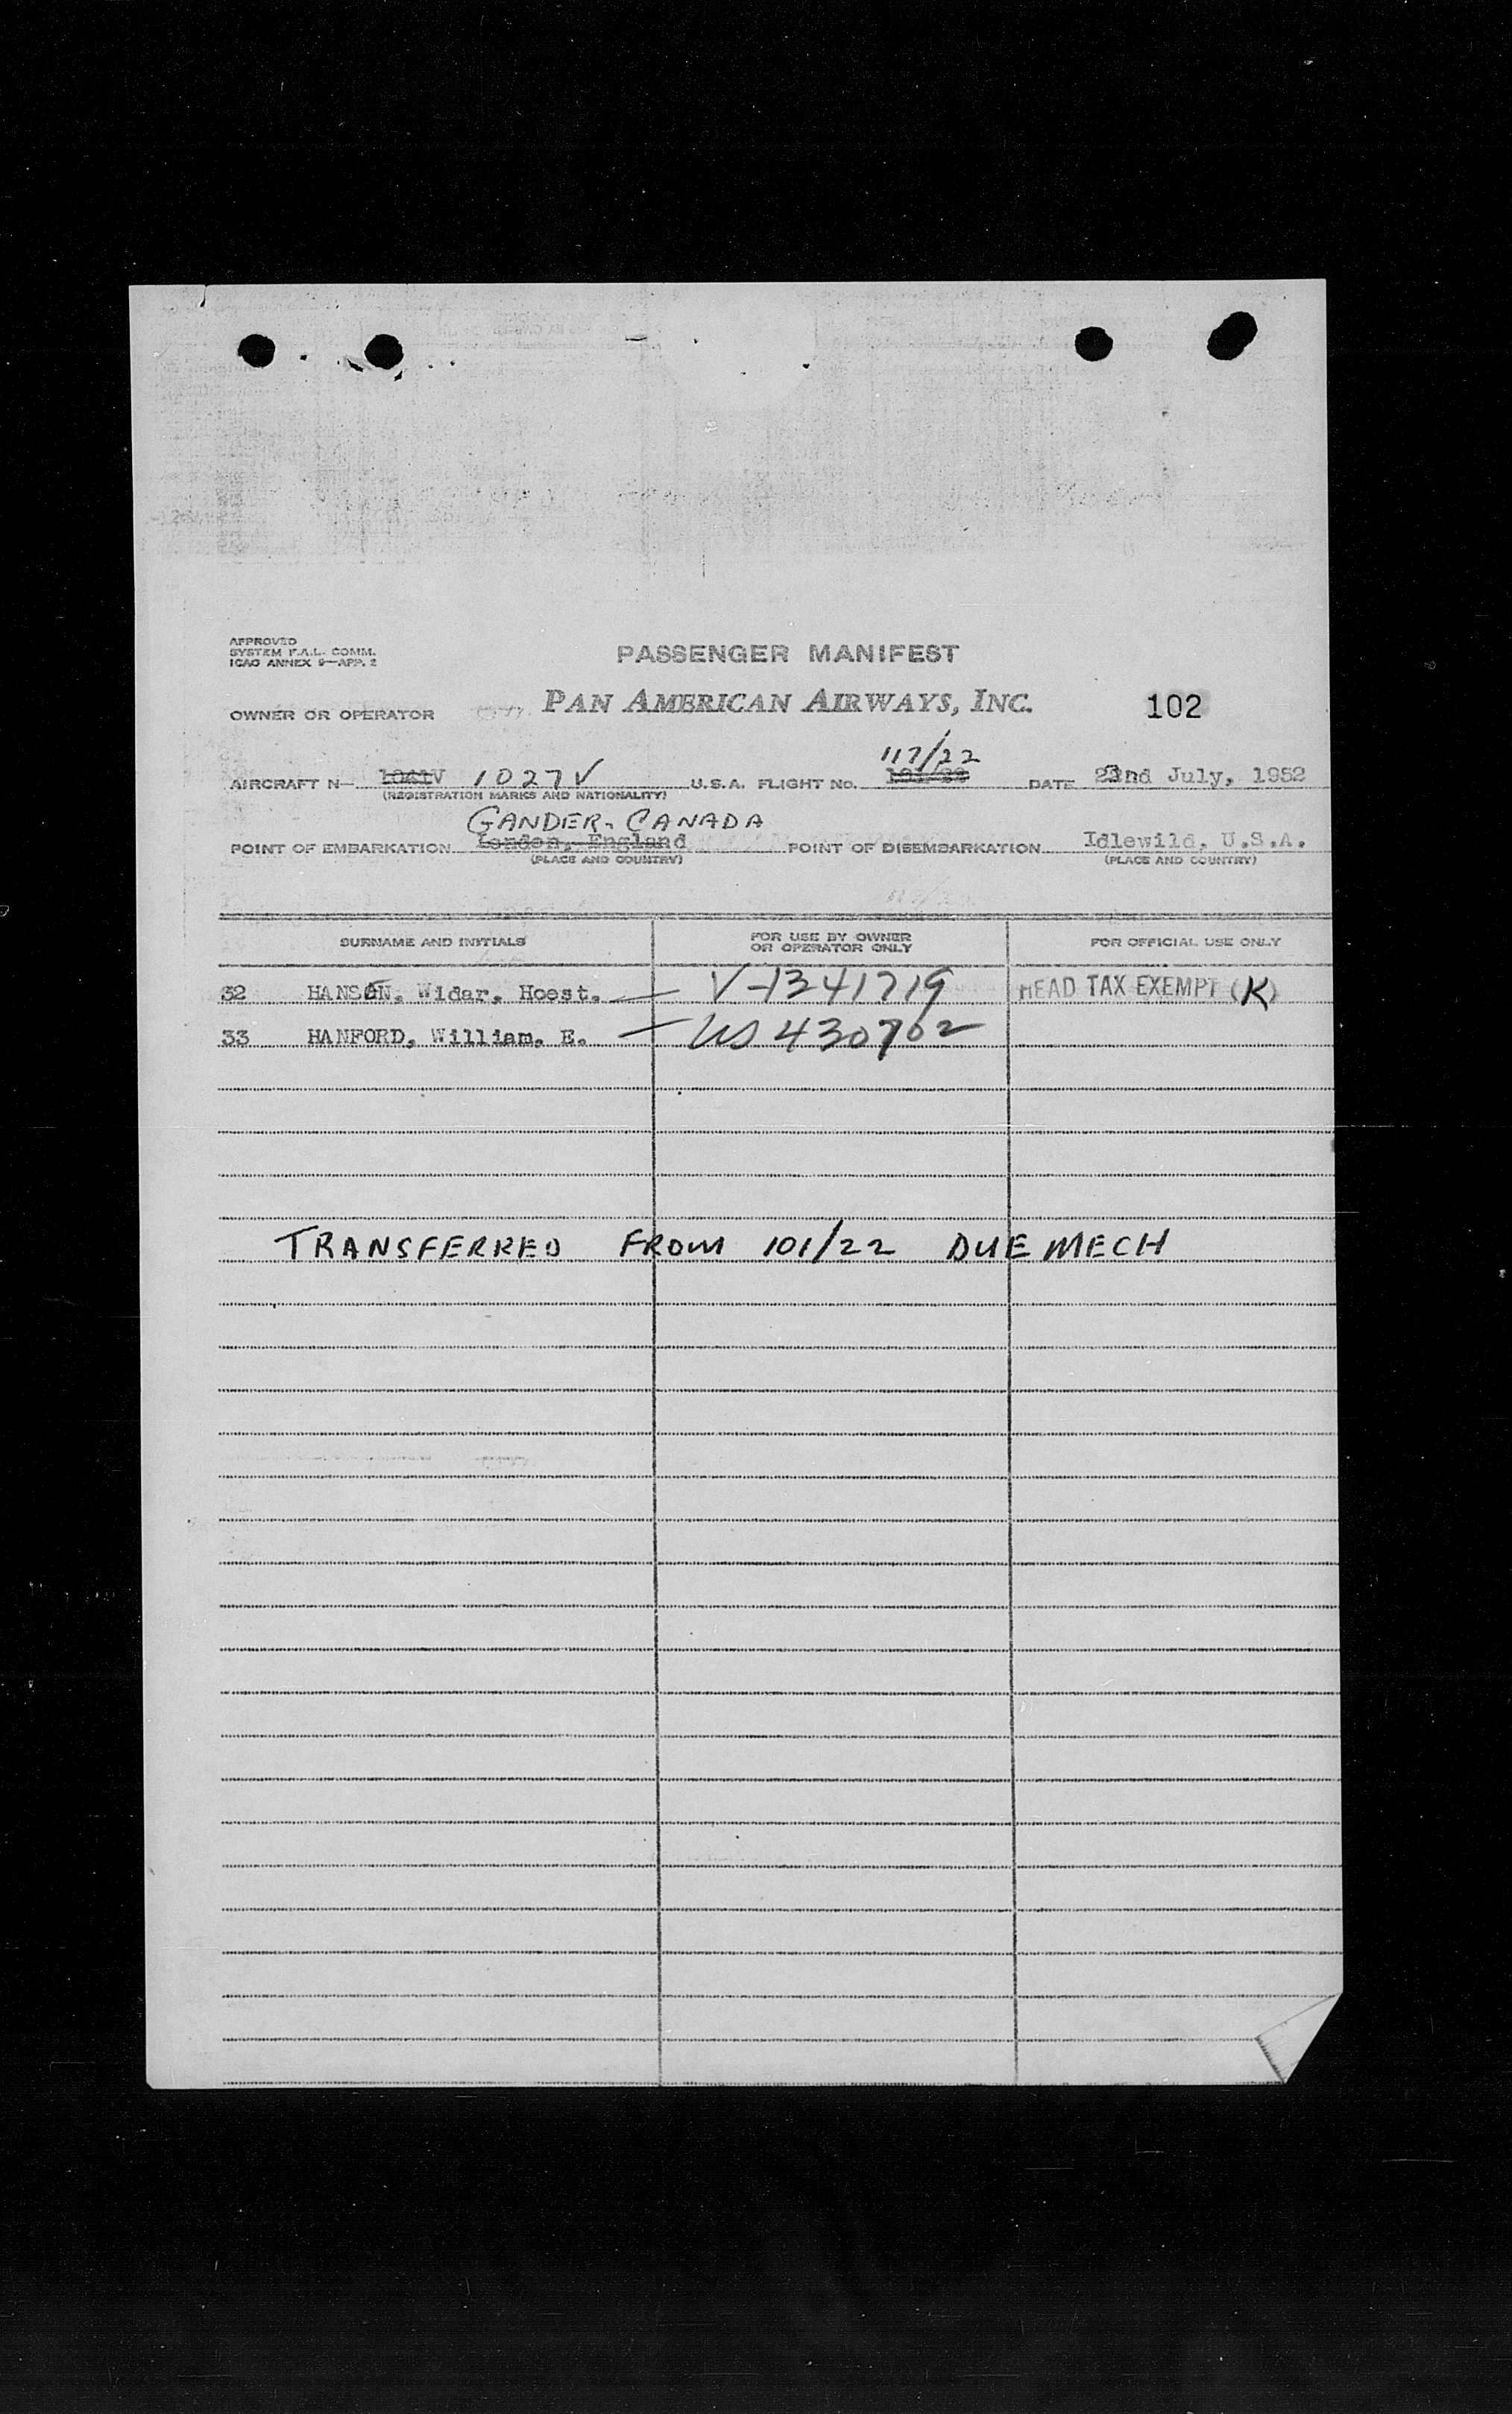 APPROVED
SYSTEM F.A.L. COMM.
ICAO ANNEX 9—APP. 2
PASSENGER MANIFEST
OWNER OR OPERATOR PAN AMERICAN AIRWAYS, INC. 102
117/22
AIRCRAFT N— 1041V 1027V U.S.A. FLIGHT NO. 101/22 DATE 22nd July, 1952
(REGISTRATION MARKS AND NATIONALITY)
GANDER, CANADA
POINT OF EMBARKATION London, England POINT OF DISEMBARKATION Idlewild, U.S.A.
(PLACE AND COUNTRY) (PLACE AND COUNTRY)
SURNAME AND INITIALS FOR USE BY OWNER OR OPERATOR ONLY FOR OFFICIAL USE ONLY
32 HANSEN, Widar, Hoest. — V-1341719 HEAD TAX EXEMPT (K)
33 HANFORD, William, E. — US 430702
TRANSFERRED FROM 101/22 DUE MECH